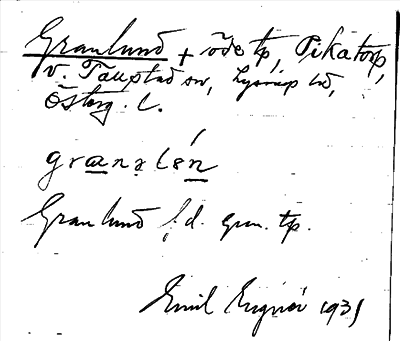 Granlund + öde tp, Pikatorp,
V. Tollstad sn, Lysings hd,
Österg. l.
granlén
Granlund f.d. grn. tp.
Emil 1931